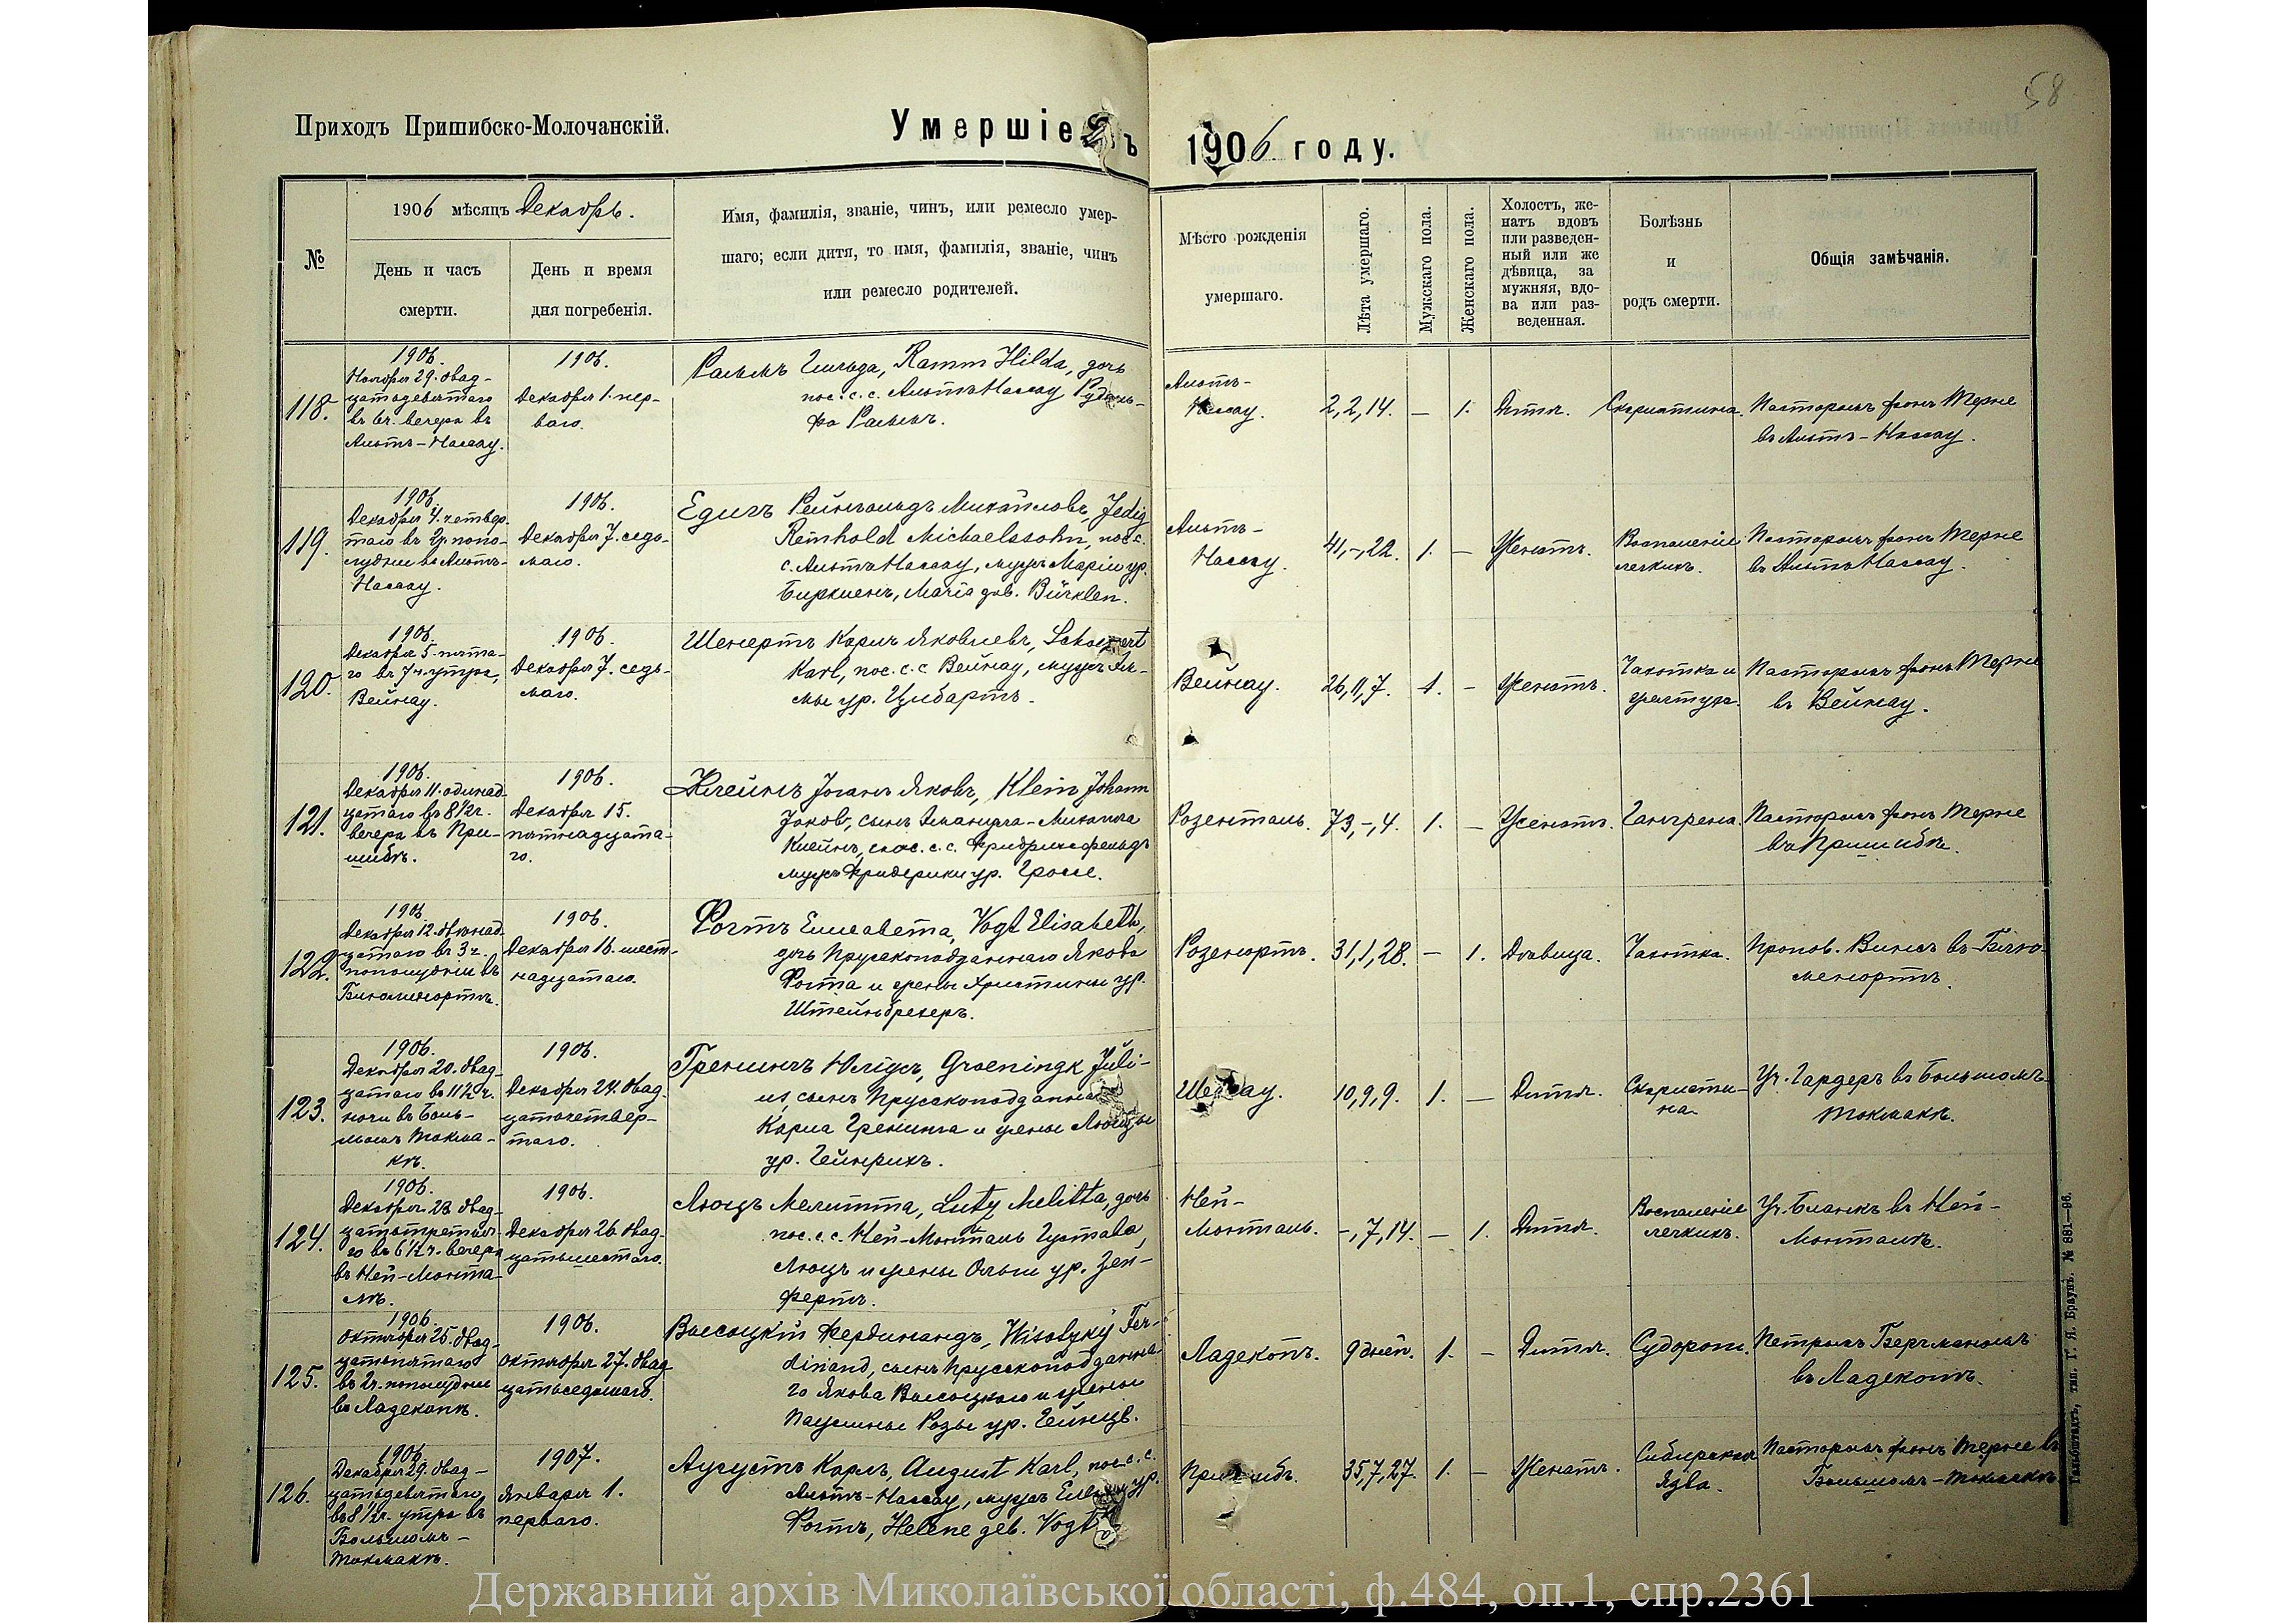 58
Приходъ Пришибско-Молочанскій.
Умершіе въ 1906 году.
№
1906 мѣсяцъ Декабрь.
День и часъ
смерти.
День и время
дня погребенія.
Имя, фамилія, званіе, чинъ, или ремесло умер-
шаго; если дитя, то имя, фамилія, званіе, чинъ
или ремесло родителей.
Мѣсто рожденія
умершаго.
Лѣта умершаго.
Мужскаго пола.
Женскаго пола.
Холостъ, же-
натъ вдовъ
или разведен-
ный или же
дѣвица, за
мужняя, вдо-
ва или раз-
веденная.
Болѣзнь
и
родъ смерти.
Общія замѣчанія.
118.
1906.
Ноября 29. двад-
цатьдевятаго
въ 6ч. вечера въ
Альтъ-Нассау.
1906.
Декабря 1. пер-
ваго.
Раммъ Гильда, Ramm Hilda, дочь
пос. с. с. Альтъ Нассау Рудоль-
фа Раммъ.
Альтъ-
Нассау.
2,2,14.
—
1.
Дитя.
Скарлатина.
Пасторомъ фонъ Терне
въ Альтъ-Нассау.
119.
1906.
Декабря 4. четвер-
таго въ 2ч. попо-
лудни въ Альтъ-
Нассау.
1906.
Декабря 7. седь-
маго.
Едигъ Рейнгольдъ Михайловъ, Jedig
Reinhold Michaelssohn, пос. с.
с. Альтъ Нассау, мужъ Маріи ур.
Биркленъ, Maria geb. Bürklen.
Альтъ-
Нассау.
41,-,22.
1.
—
Женатъ.
Воспаленіе
легкихъ.
Пасторомъ фонъ Терне
въ Альтъ Нассау.
120.
1906.
Декабря 5. пята-
го въ 7ч. утра,
Вейнау.
1906.
Декабря 7. седь-
маго.
Шенертъ Карлъ Яковлевъ, Schoenert
Karl, пос. с. с Вейнау, мужъ Ал-
мы ур. Цибартъ.
Вейнау.
26,11,7.
1.
—
Женатъ.
Чахотка и
Пасторомъ фонъ Терне
въ Вейнау.
121.
1906.
Декабря 11. одинад-
цатаго въ 8 1/2ч.
вечера въ При-
шибѣ.
1906.
Декабря 15.
пятнадцата-
го.
Клейнъ Іоганъ Яковъ, Klein Johann
Jakob, сынъ Эмануила-Михаила
Клейнъ, пос. с. с. Фридрихсфельдъ
мужъ Фридерики ур. Гроссе.
Розенталь.
73,-,4.
1.
—
Женатъ.
Гангрена.
Пасторомъ фонъ Терне
въ Пришибѣ.
122.
1906.
Декабря 12. двѣнад-
цатаго въ 3ч.
пополудни въ
Блюменортѣ.
1906.
Декабря 16. шест-
надцатаго.
Фогтъ Елисавета, Vogt Elisabeth,
дочь Прусскоподданнаго Якова
Фогта и жены Христины ур.
Штейнбрехеръ.
Розенортъ.
31,1,28.
—
1.
Дѣвица.
Чахотка.
Пропов. Винсъ въ Блю-
менортѣ.
123.
1906.
Декабря 20. двад-
цатаго въ 11 1/2ч.
ночи въ Боль-
шомъ Токма-
кѣ.
1906.
Декабря 24. двад-
цатьчетвер-
таго.
Гренингъ Юліусъ, Groeningk Juli-
us, сынъ Прусскоподданнаго
Карла Гренинга и жены
ур. Гейнрихъ.
10,9,9.
1.
—
Дитя.
Скарлати-
на.
Уч. Гардеръ въ Большомъ-
Токмакѣ.
124.
1906.
Декабря 23. двад-
цатьтретья-
го въ 6 1/2ч. вечера
въ Ней-Монта-
лѣ.
1906.
Декабря 26. двад-
цатьшестаго.
Люцъ Мелитта, Lutz Melitta, дочь
пос. с. с. Ней-Монталь Густава
Люцъ и жены Ольги ур. Зей-
фертъ.
Ней-
Монталь.
-,7,14.
—
1.
Дитя.
Воспаленіе
легкихъ.
Уч. Бланкъ въ Ней-
Монталѣ.
125.
1906.
Октября 25. двад-
цатьпятаго
въ 2ч. пополудни
въ Ладекопѣ.
1906.
Октября 27. двад-
цатьседьмаго.
Высоцкій Фердинандъ, Wisotzky Fer-
dinand, сынъ Прусскоподданна-
го Якова Высоцкаго и жены
Паулины Розы ур. Гейнце.
Ладекопъ.
9 дней.
1.
—
Дитя.
Судороги.
Петромъ Бергманомъ
въ Ладекопѣ.
126.
1906.
Декабря 29. двад-
цатьдевятаго,
въ 8 1/2ч. утра въ
Большомъ-
Токмакѣ.
1907.
Января 1.
перваго.
Аугустъ Карлъ, August Karl, пос. с. с.
Альтъ-Нассау, мужъ Елены ур.
Фогтъ, Helene geb. Vogt.
Пришибъ.
35,7,27.
1.
—
Женатъ.
Сибирская
Язва.
Пасторомъ фонъ Терне въ
Большомъ-Токмакѣ.
Гальбштадтъ, тип. Г. Я. Браунъ. № 881—96.
Державний архів Миколаївської області, ф.484, оп.1, спр.2361